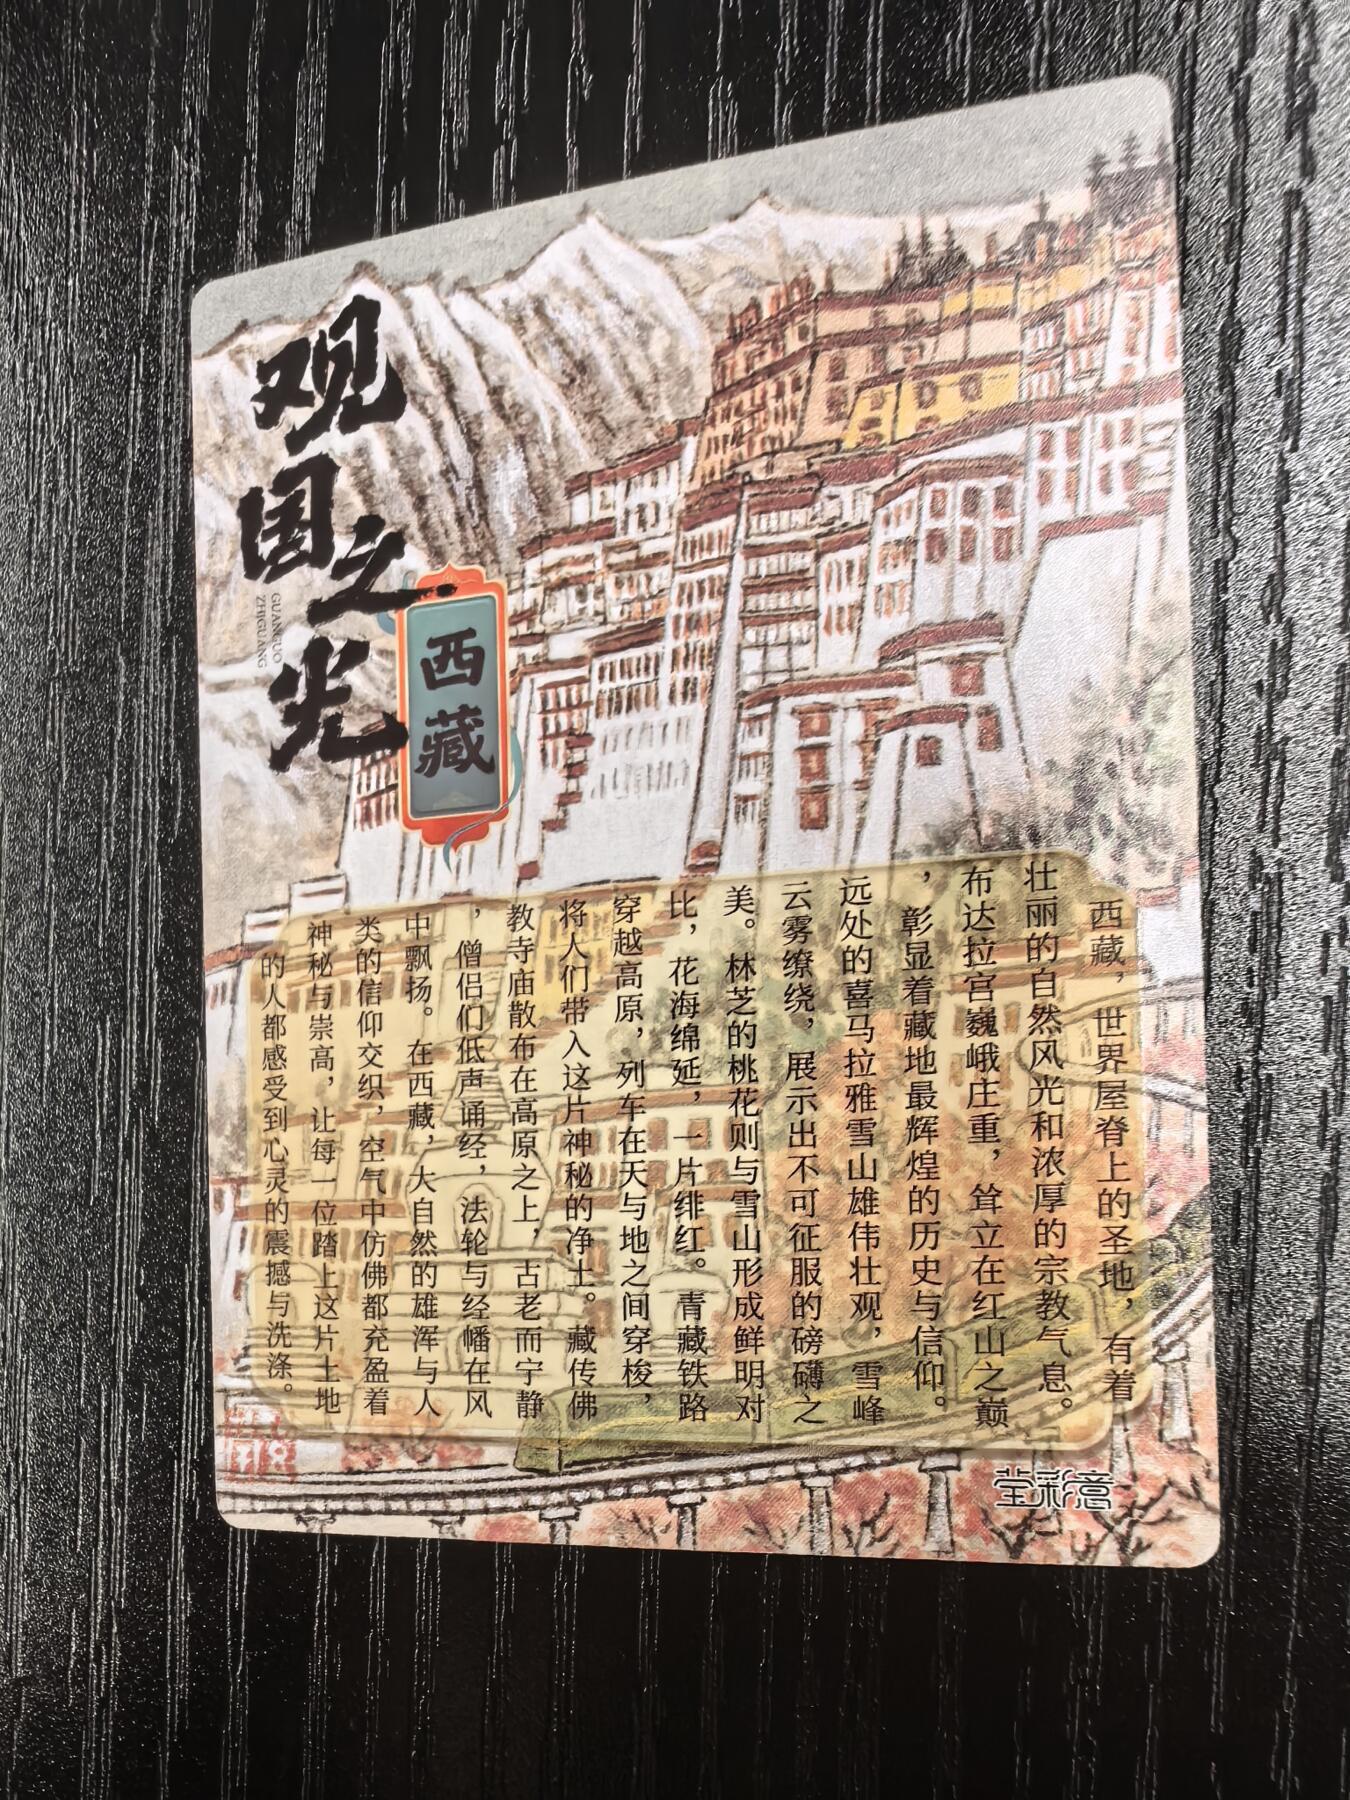 观国之光
GUANGUO
ZHIGUANG
西藏
西藏，世界屋脊上的圣地，有着
壮丽的自然风光和浓厚的宗教气息。
布达拉宫巍峨庄重，耸立在红山之巅
，彰显着藏地最辉煌的历史与信仰。
远处的喜马拉雅雪山雄伟壮观，雪峰
云雾缭绕，展示出不可征服的磅礴之
美。林芝的桃花则与雪山形成鲜明对
比，花海绵延，一片绯红。青藏铁路
穿越高原，列车在天与地之间穿梭，
将人们带入这片神秘的净土。藏传佛
教寺庙散布在高原之上，古老而宁静
，僧侣们低声诵经，法轮与经幡在风
中飘扬。在西藏，大自然的雄浑与人
类的信仰交织，空气中仿佛都充盈着
神秘与崇高，让每一位踏上这片土地
的人都感受到心灵的震撼与洗涤。
莹彩意